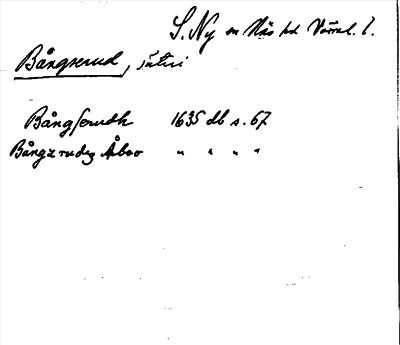 S. Ny sn Näs hd Värml. l.
Bångserud, säteri
Bångserudh 1635 db s. 67
Bångzrudz Åboo " " " "